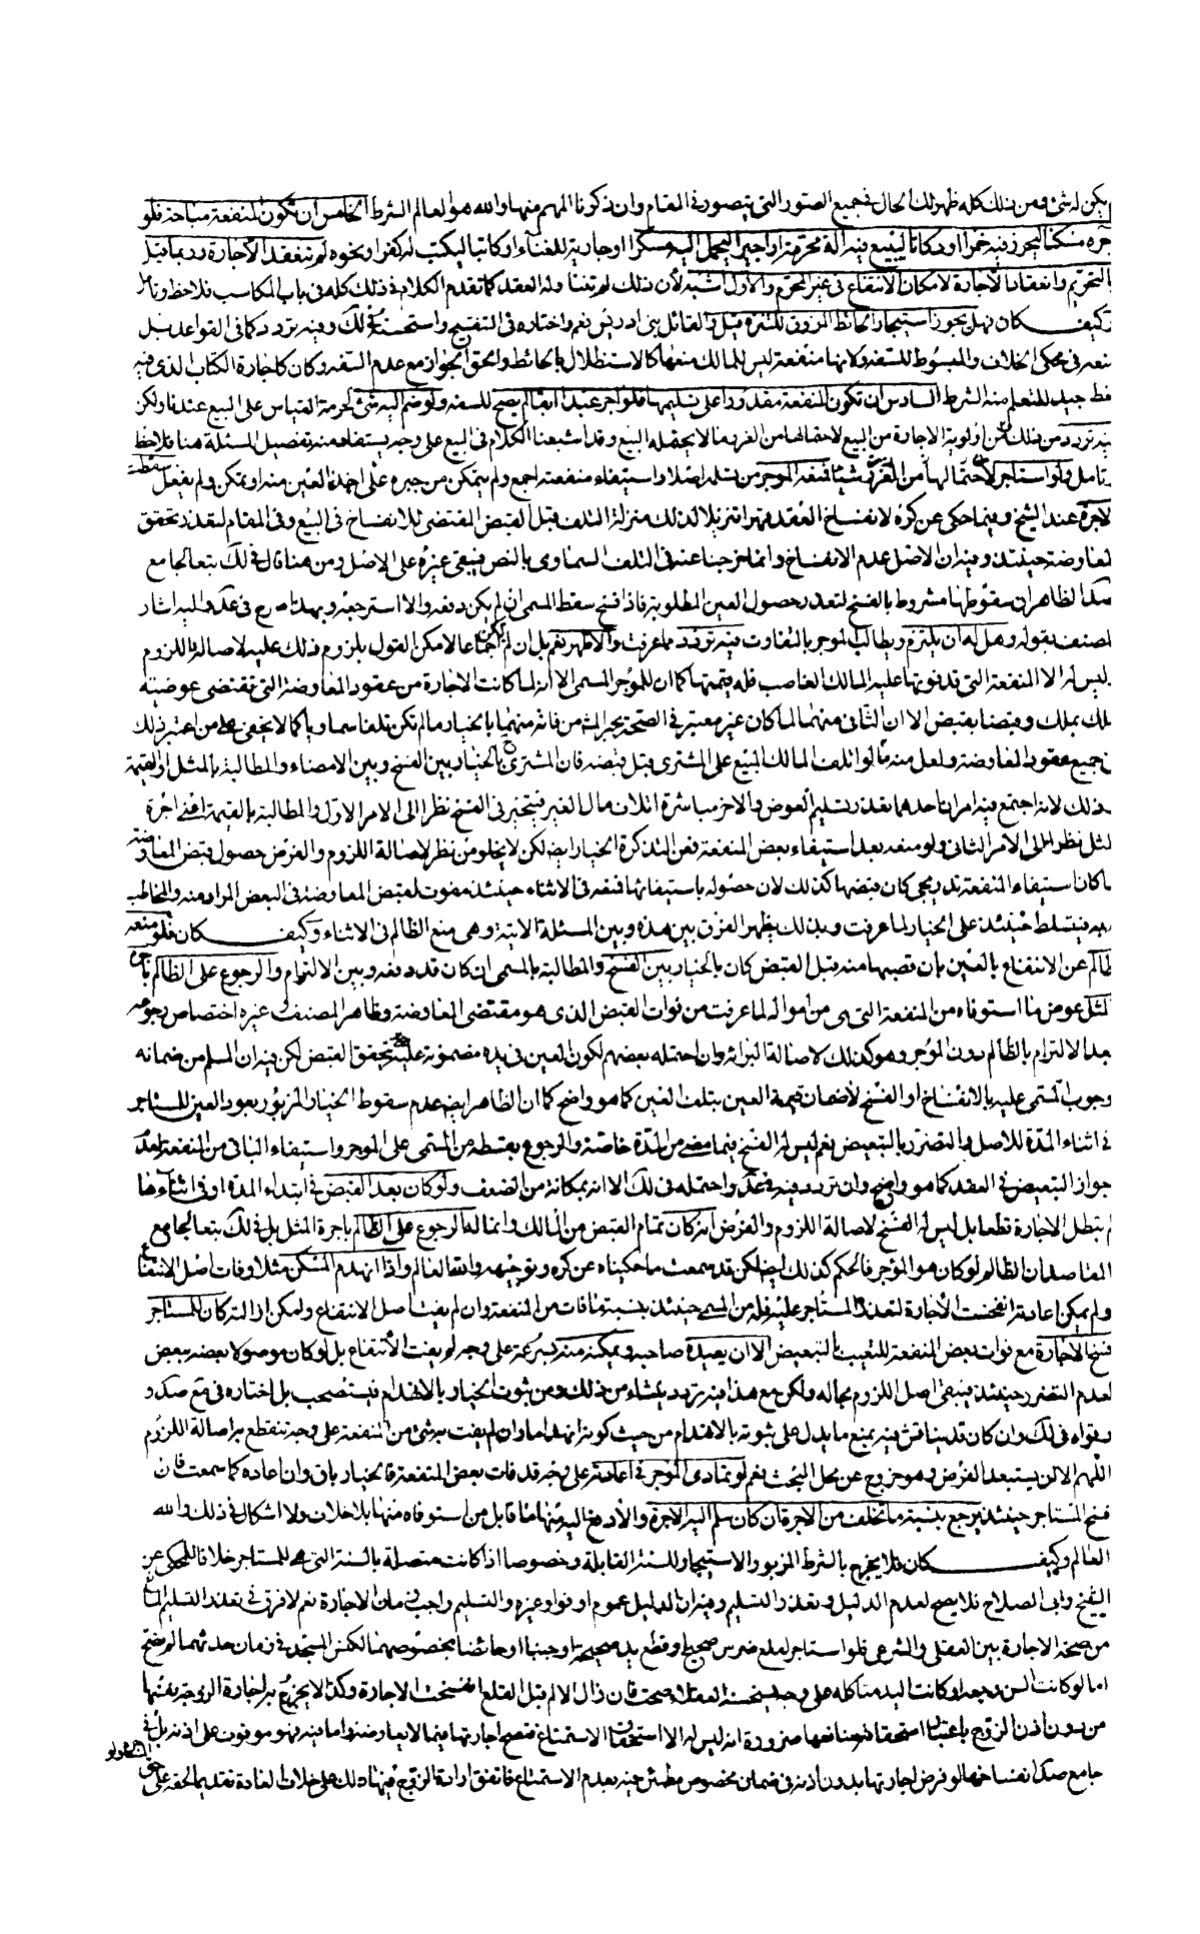 يكن له شئ ومن ذلك كله ظهر لك الحال في جميع الصور التي يتصور في المقام وان ذكرنا المهم منها والله هو العالم الشرط الخامس ان تكون المنفعة مباحة فلو
جره مسكنا ليحرز فيه خمرا او دكانا ليبيع فيه الة محرمة او اجيرا ليحمل اليه مسكرا او جارية للغناء او كاتبا ليكتب له كفرا ونحوه لم تنعقد الاجارة وربما قيل
بالتحريم وانعقاد الاجارة لامكان الانتفاع في غير المحرم والاول اشبه لان ذلك لم تتناوله العقد كما تقدم الكلام في ذلك كله في باب المكاسب فلاحظ وتامل
وكيف كان فهل يجوز استيجار الحائط المزوق للتنزه قيل والقائل بن ادريس نعم واختاره في التنقيح واستحسنه في لك وفيه تردد كما في القواعد بل
منعه في محكى الخلاف والمبسوط للسفه ولانها منفعة ليس للمالك منعها كالاستظلال بالحائط والحق الجواز مع عدم السفه وكان كاجارة الكتاب الذي فيه
خط جيد للتعلم منه الشرط السادس ان تكون المنفعة مقدورا على تسليمها فلو اجر عبدا ابقا لم يصح للسفه ولو ضم اليه شئ لحرمة القياس على البيع عندنا ولكن
فيه تردد من ذلك ومن اولوية الاجارة من البيع لاحتمالها من الغرر ما لا يحتمله البيع وقد اشبعنا الكلام في البيع على وجه يستفاد منه تفصيل المسئلة هنا فلاحظ
وتامل ولو استاجر لاحتمالها من الغرر شيئا فمنعه الموجر من تسلمه اصلا واستيفاء منفعته اجمع ولم يتمكن من جبره على اخذ العين منه او تمكن ولم يفعل سقطت
الاجرة عند الشيخ وفيما حكى عن كره لانفساخ العقد قهرا تنزيلا لذلك منزلة التلف قبل القبض المقتضى للانفساخ في البيع وفي المقام لتعذر تحقق
المعاوضة حينئذ وفيه ان الاصل عدم الانفساخ وانما خرجنا عنه في التلف السماوى بالنص فيبقى غيره على الاصل ومن هنا قال في لك تبعا لجامع
صد الظاهر ان سقوطها مشروط بالفسخ لتعذر حصول العين المطلوبة فاذا فسخ سقط المسمى ان لم يكن دفعه والا استرجعه وبهذا صرح في عد واليه اشار
المصنف بقوله وهل له ان يلتزم ويطالب الموجر بالتفاوت فيه تردد مما عرفت والاظهر نعم بل ان لم يكن اجماعا لامكن القول بلزوم ذلك عليه لاصالة اللزوم
وليس له الا المنفعة التي قد فوتها عليه المالك الغاصب فله قيمتها كما ان للموجر المسمى الا انه لما كانت الاجارة من عقود المعاوضة التي تقتضى عوضيته
ملك بملك وقبضا بقبض الا ان الثاني منهما لما كان غير معتبر في الصحة يجبر الثمن فاته منهما بالخيار ما لم تكن تلفا سماويا كما لا يخفى على من اعتبر ذلك
في جميع عقود المعاوضة ولعل منه ما لو اتلف المالك المبيع على المشترى قبل قبضه فان المشترى بالخيار بين الفسخ وبين الامضاء والمطالبة بالمثل او القيمة
وذلك لانه اجتمع فيه امران احدهما تعذر تسليم العوض والاخر مباشرة اتلاف مال الغير فيتخير في الفسخ نظرا الى الامر الاول والمطالبة بالقيمة اعنى اجرة
المثل نظرا الى الامر الثاني ولو منعه بعد استيفاء بعض المنفعة فعن التذكرة الخيار ايضا لكن لا يخلو من نظر لاصالة اللزوم والفرض حصول قبض المعاوضة
لما كان استيفاء المنفعة تدريجي كان قبضها كذلك لان حصوله باستيفائها فمنعه في الاثناء حينئذ مفوت لقبض المعاوضة في البعض المراد منه والمخاطب
به فيتسلط حينئذ على الخيار لما عرفت وبذلك يظهر الفرق بين هذه وبين المسئلة الاتية وهي منع الظالم في الاثناء وكيف كان فلو منعه
ظالم عن الانتفاع بالعين بان غصبها منه قبل القبض كان بالخيار بين الفسخ والمطالبة بالمسمى ان كان قد دفعه وبين الالتزام والرجوع على الظالم باجرة
المثل عوض ما استوفاه من المنفعة التي هي من امواله لما عرفت من فوات القبض الذي هو مقتضى المعاوضة وظاهر المصنف غيره اختصاص رجوعه
بعد الالتزام بالظالم دون الموجر وهو كذلك لاصالة البرائة وان احتمله بعضهم لكون العين في يده مضمونة عليه حتى يتحقق القبض لكن فيه ان المسلم من ضمانه
وجوب المسمى عليه بالانفساخ او الفسخ لا ضمان قيمة العين بتلف العين كما هو واضح كما ان الظاهر ايضا عدم سقوط الخيار المزبور بعود العين للمستاجر
في اثناء المدة للاصل والتضرر بالتبعيض نعم ليس له الفسخ فيما مضى من المدة خاصة والرجوع بقسطه من المسمى على الموجر واستيفاء الباقى من المنفعة لعدم
جواز التبعيض في العقد كما هو واضح وان تردد فيه في عد واحتمله في لك الا انه بمكانة من الضعف ولو كان بعد القبض في ابتداء المدة او في اثنائها
لم يتطل الاجارة قطعا بل ليس له الفسخ لاصالة اللزوم والفرض انه كان تمام القبض من المالك وانما له الرجوع على الظالم باجرة المثل بل في لك تبعا لجامع
المقاصد ان الظالم لو كان هو الموجر فالحكم كذلك ايضا لكن قد سمعت ما حكيناه عن كره وتوجيهه والله العالم واذا انهدم المسكن مثلا وفات اصل الانتفاع
ولم يمكن اعادته انفسخت الاجارة لتعذر المستاجر عليه فله من المسمى حينئذ بنسبة ما فات من المنفعة وان لم يفت اصل الانتفاع ولمكن ازالته كان للمستاجر
فسخ الاجارة مع فوات بعض المنفعة للتعيب بالتبعيض الا ان يعيده صاحبه ويمكنه منه بسرعة على وجه لم يفت الانتفاع بل لو كان موصولا بعضه ببعض
لعدم التضرر حينئذ فيبقى اصل اللزوم بحاله ولكن مع هذا فيه تردد ينشاء من ذلك ومن ثبوت الخيار بالانهدام فيستصحب بل اختاره في مع صد و
وقواه في لك وان كان قد يناقش فيه بمنع ما يدل على ثبوته بالانهدام من حيث كونه انهداما وان لم يفت به شئ من المنفعة على وجه تنقطع به اصالة اللزوم
اللهم الا ان يستبعد الفرض وهو خروج عن محل البحث نعم لو تمادى الموجر في اعادته على وجه قد فات بعض المنفعة فالخيار باق وان اعاده كما سمعت فان
فسخ المستاجر حينئذ يرجع بنسبة ما تخلف من الاجرة ان كان سلم اليه الاجرة والا دفع اليه منها ما قابل من استوفاه منها بلا خلاف ولا اشكال في ذلك والله
العالم وكيف كان فلا يخرج بالشرط المزبور الاستيجار للسنة القابلة وخصوصا اذا كانت متصلة بالسنة التي هي للمستاجر خلافا للمحكى عن
الشيخ وابى الصلاح فلا يصح لعدم الدليل وتعذر التسليم وفيه ان الدليل عموم اوفوا وغيره والتسليم واجب في زمان الاجارة نعم لا فرق في تعذر التسليم المانع
من صحة الاجارة بين العقلى والشرعى فلو استاجر لقلع ضرس صحيح او قطع يد صحيحة او جنبا او حائضا بخصوصهما لكنس المسجد في زمان حدثهما لم يصح
اما لو كانت السن وجعة او كانت اليد متاكلة على وجه يستحسنه العقلاء صحت فان زال الالم قبل القلع انفسخت الاجارة وكذا لا يخرج به اجارة الزوجة نفسها
من دون اذن الزوج باعتبار استحقاقه منافعها ضرورة انه ليس له الا استحقاق الاستمتاع فتصح اجارتها فيما لا يعارضه واما فيه فهو موقوف على اذنه بل في
جامع صد انفساخها لو فرض اجارتها بدون اذنه في ضمان مخصوص مطمئن فيه بعدم الاستمتاع فاتفق ارادة الزوج فيها ذلك على خلاف العادة تقديما لحقه على حق